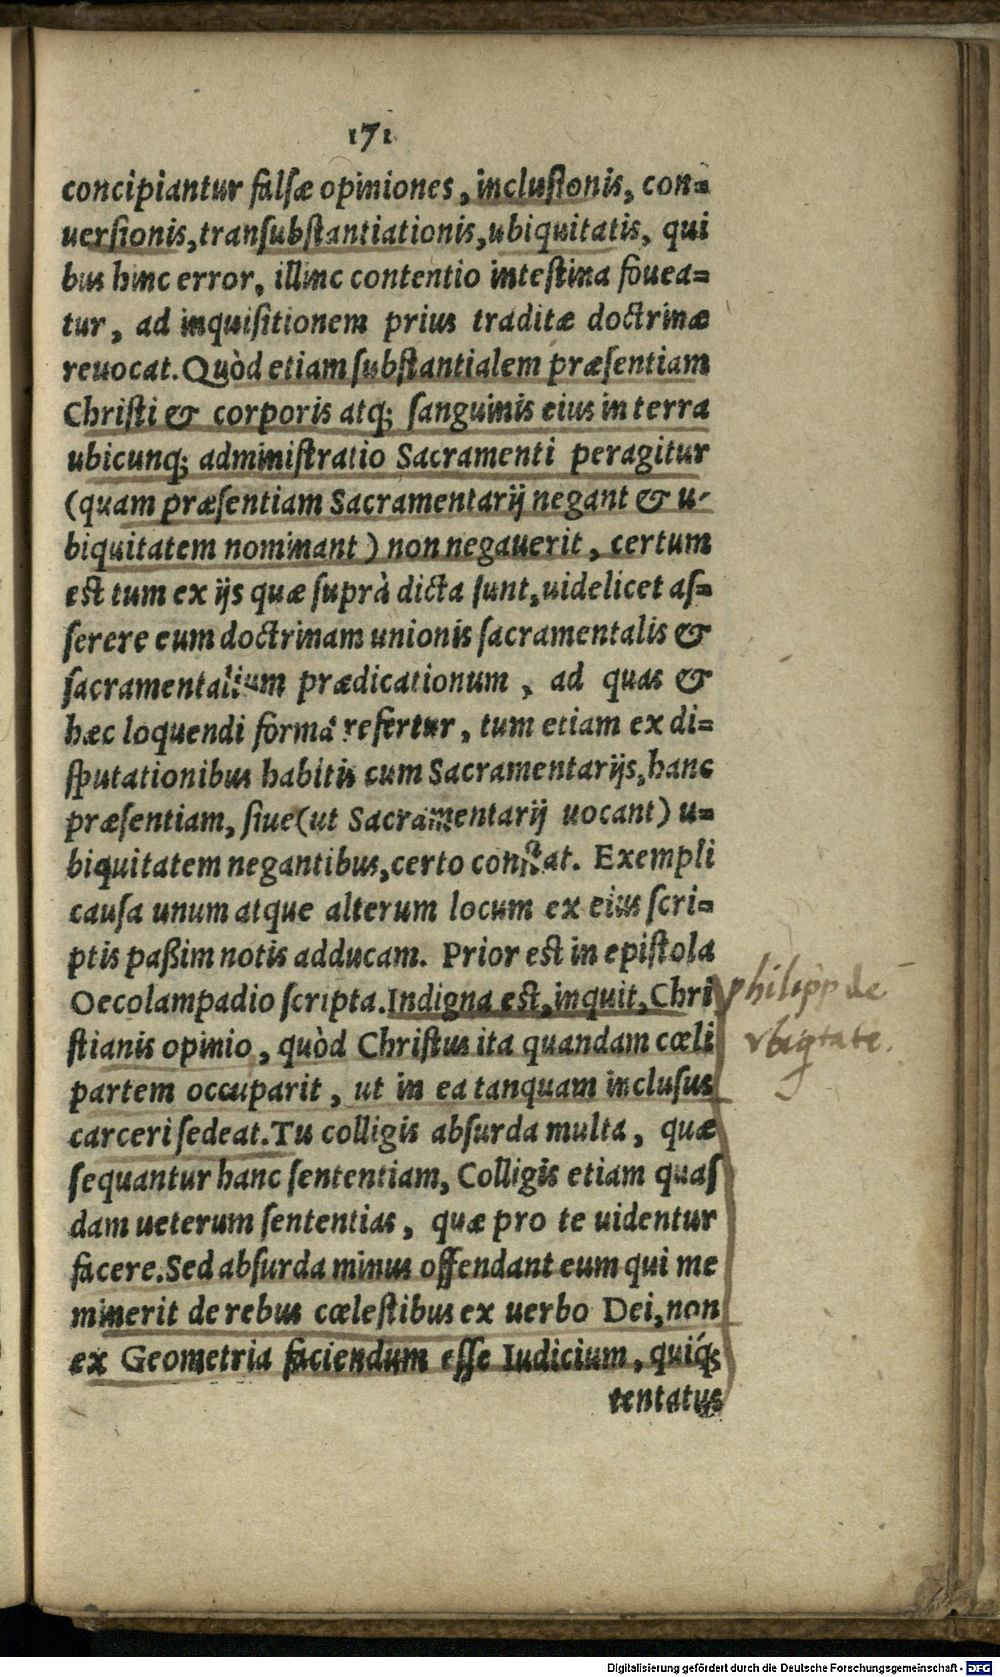 171
concipiantur falsæ opiniones, inclusionis, con=
uersionis, transubstantiationis, ubiquitatis, qui
bus hinc error, illinc contentio intestina fouea=
tur, ad inquisitionem prius traditæ doctrinæ
reuocat. Quòd etiam substantialem præsentiam
Christi & corporis atq; sanguinis eius in terra
ubicunq; administratio Sacramenti peragitur
(quam præsentiam Sacramentarij negant & u-
biquitatem nominant) non negauerit, certum
est tum ex ijs quæ suprà dicta sunt, uidelicet as=
serere eum doctrinam unionis sacramentalis &
sacramentalium prædicationum, ad quas &
hæc loquendi forma refertur, tum etiam ex di=
sputationibus habitis cum Sacramentarijs, hanc
præsentiam, siue (ut Sacramentarij uocant) u=
biquitatem negantibus, certo constat. Exempli
causa unum atque alterum locum ex eius scri=
ptis paßim notis adducam. Prior est in epistola
Oecolampadio scripta. Indigna est, inquit, Chri
stianis opinio, quòd Christus ita quandam cœli
partem occuparit, ut in ea tanquam inclusus
carceri sedeat. Tu colligis absurda multa, quæ
sequantur hanc sententiam, Colligis etiam quas
dam ueterum sententias, quæ pro te uidentur
facere. Sed absurda minus offendant eum qui me
minerit de rebus cœlestibus ex uerbo Dei, non
ex Geometria faciendum esse Iudicium, quiq́;
tentatus
philipp de
vbiqtate.
Digitalisierung gefördert durch die Deutsche Forschungsgemeinschaft - DFG